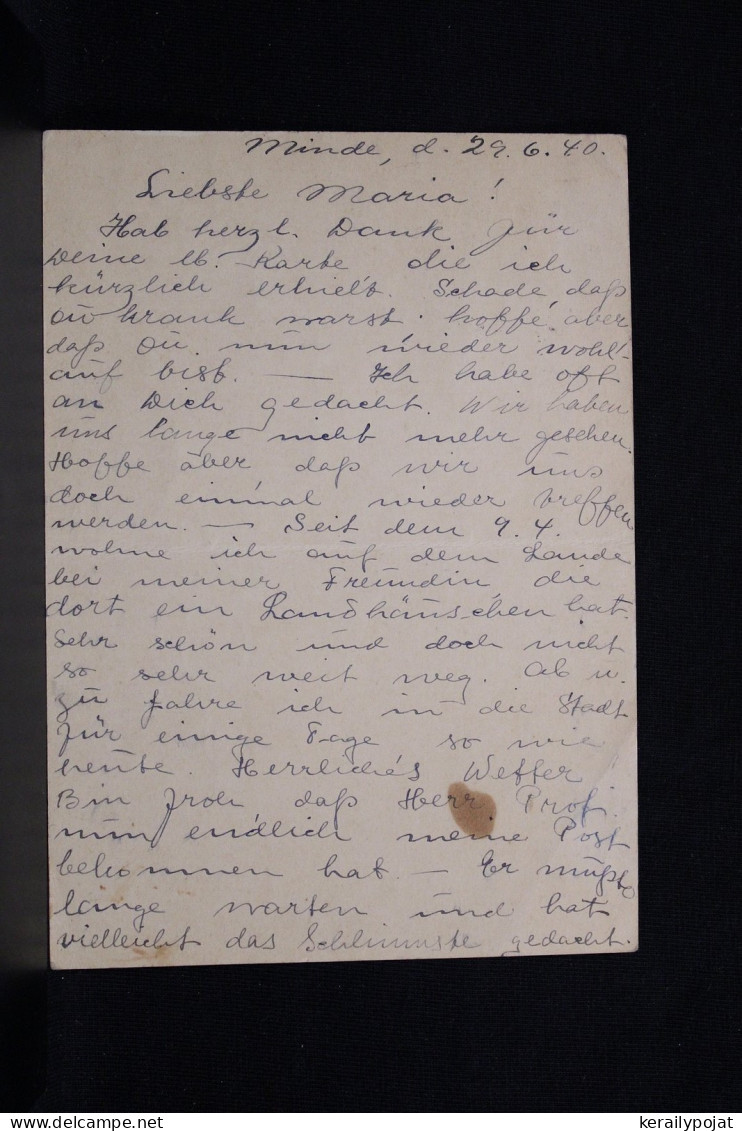 Minde, d. 29.6.40.
Liebste Maria!
Hab herzl. Dank für
Deine lb. Karte die ich
kürzlich erhielt. Schade, daß
Du krank warst. hoffe, aber
daß Du nun wieder wohl-
auf bist. — Ich habe oft
an Dich gedacht. Wir haben
uns lange nicht mehr gesehen.
Hoffe aber daß wir uns
doch einmal wieder treffen
werden. — Seit dem 9.4.
wohne ich auf dem Lande
bei meiner Freundin, die
dort ein Landhäuschen hat.
Sehr schön und doch nicht
so sehr weit weg. Ab u.
zu fahre ich in die Stadt
für einige Tage so wie
heute. Herrliches Wetter
Bin froh daß Herr Prof.
nun endlich meine Post
bekommen hat. — Er mußte
lange warten und hat
vielleicht das Schlimmste gedacht.
kerailypojat